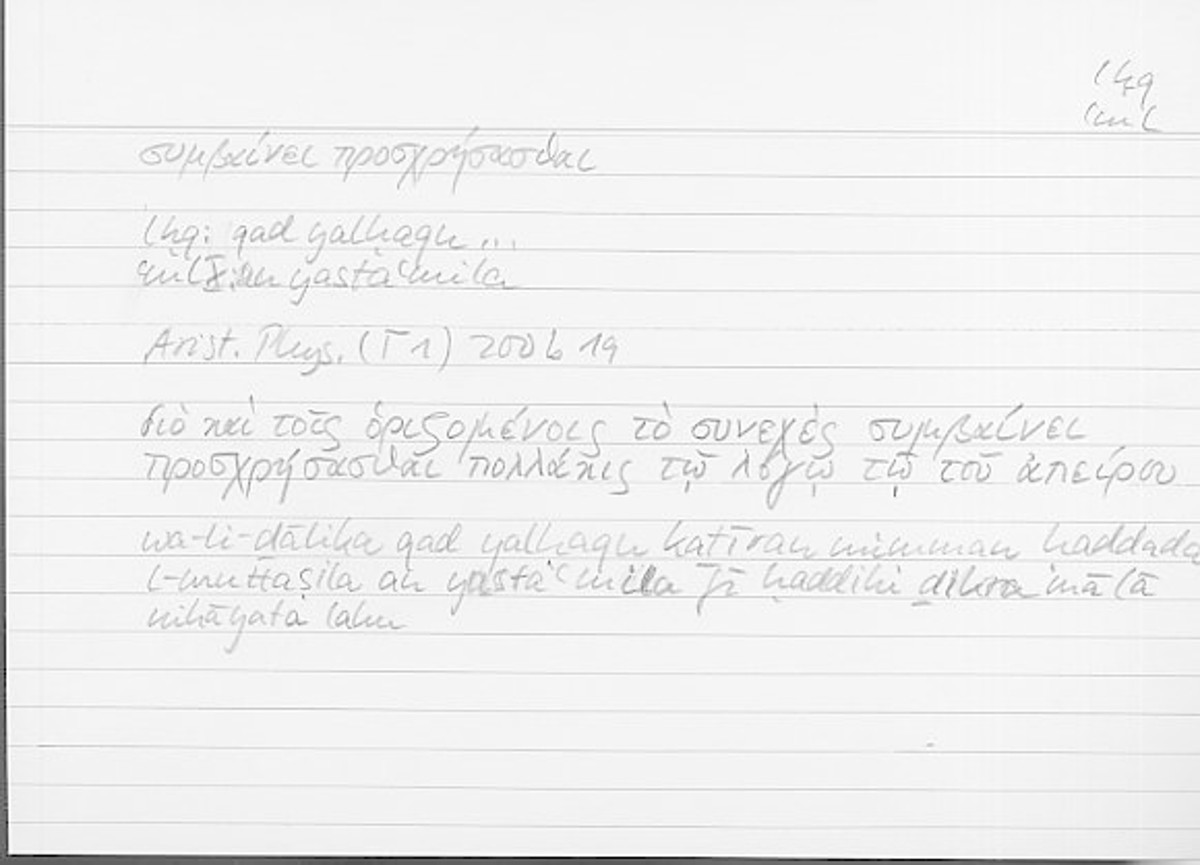 lḥq
ʿml
συμβαίνει προσχρήσασθαι
lḥq: qad yalḥaqu ...
ʿml X: an yastaʿmila
Arist. Phys. (Γ 1) 200 b 19
διὸ καὶ τοῖς ὁριζομένοις τὸ συνεχὲς συμβαίνει
προσχρήσασθαι πολλάκις τῷ λόγῳ τῷ τοῦ ἀπείρου
wa-li-ḏālika qad yalḥaqu kaṯīran mimman ḥaddada
l-muttaṣila an yastaʿmila fī ḥaddihi ḏikra mā lā
nihāyata lahu